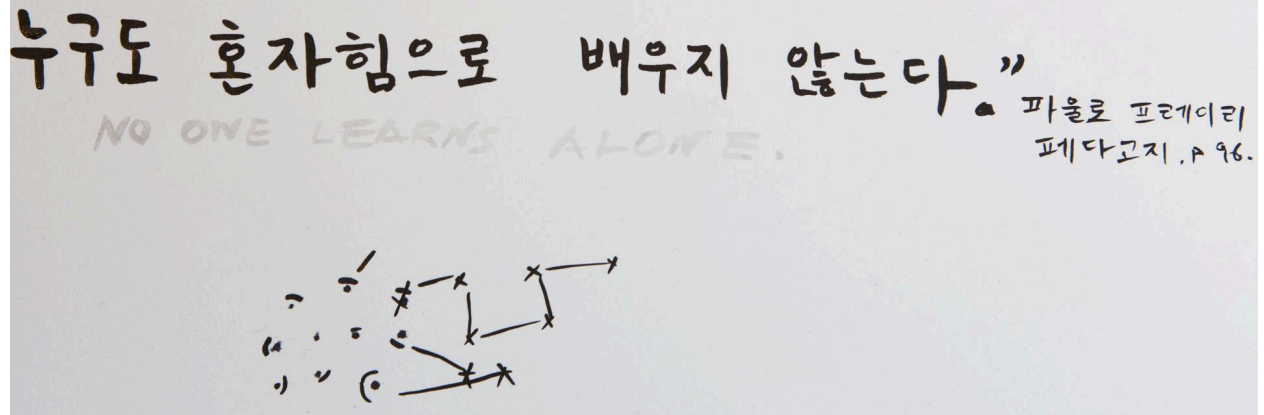 누구도 혼자힘으로 배우지 않는다.”
파울로 프레이리
페다고지. p 96.
NO ONE LEARNS ALONE.